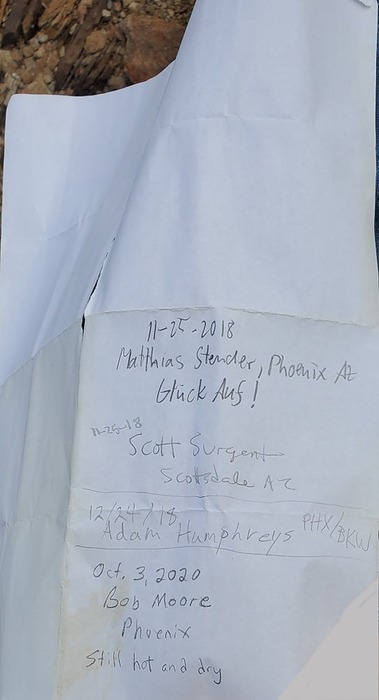 11-25-2018
Matthias Stender, Phoenix Az
Glück Auf!
11-25-18
Scott Surgent
Scottsdale AZ
12/24/18
Adam Humphreys PHX/BKW
Oct. 3, 2020
Bob Moore
Phoenix
Still hot and dry